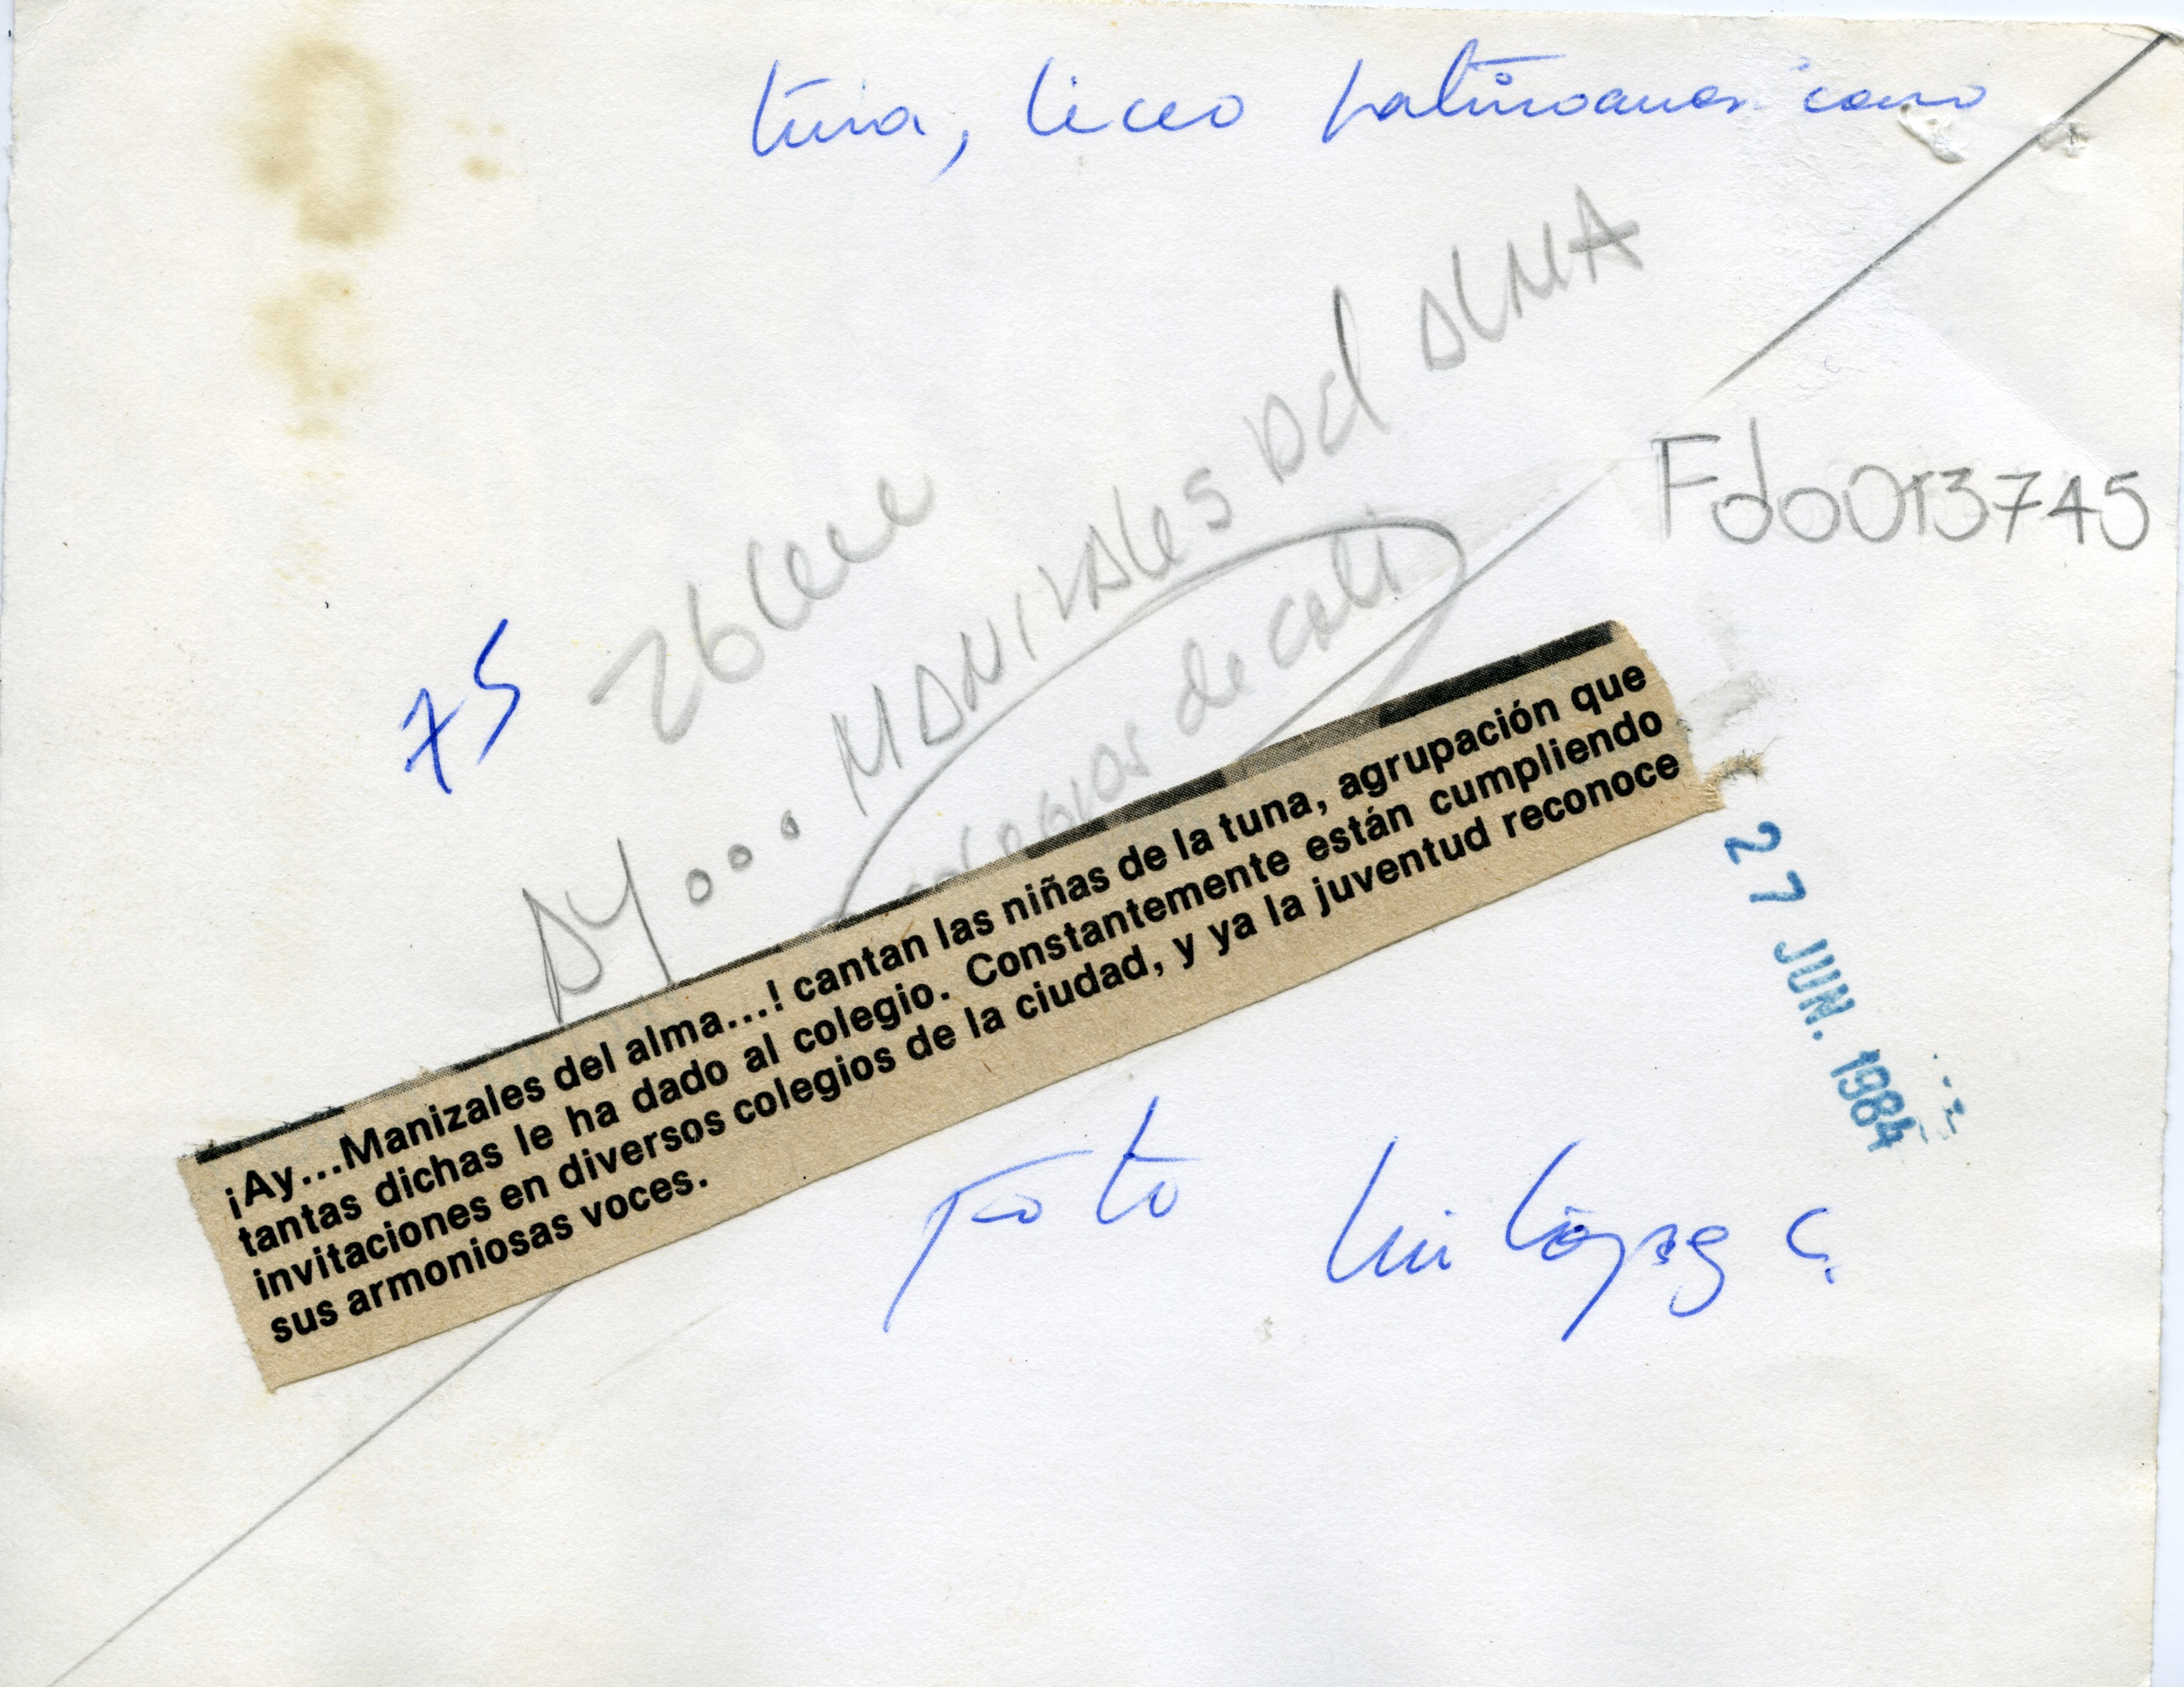 tuna, liceo Latinoamericano
Fdo013745
75
26
AY... MANIZALES Del ALMA
colegios de cali
¡Ay...Manizales del alma...! cantan las niñas de la tuna, agrupación que
tantas dichas le ha dado al colegio. Constantemente están cumpliendo
invitaciones en diversos colegios de la ciudad, y ya la juventud reconoce
sus armoniosas voces.
27 JUN. 1984
Foto Luis López C.